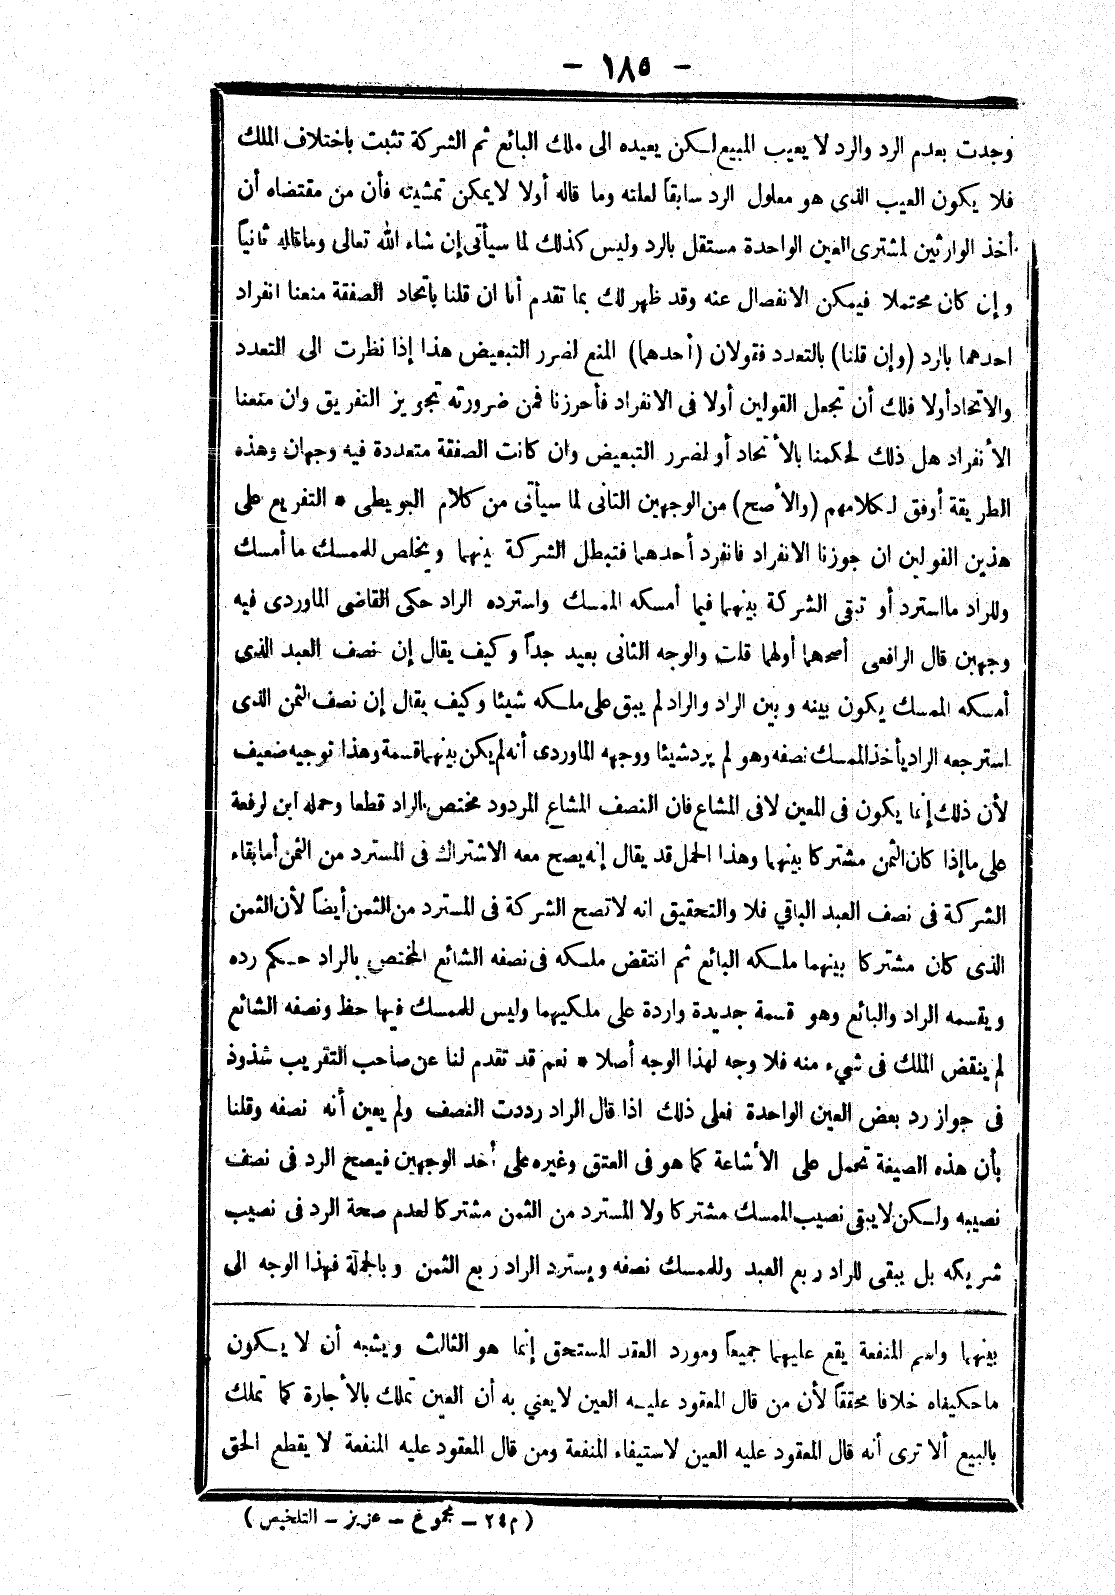 - ١٨٥ -
وجدت بعدم الرد والرد لا يعيب المبيع لكن يعيده الى ملك البائع ثم الشركة تثبت باختلاف الملك
فلا يكون العيب الذى هو معلول الرد سابقاً لعلته وما قاله أولا لا يمكن تمشيته فأن من مقتضاه أن
أخذ الوارثين لمشترى العين الواحدة مستقل بالرد وليس كذلك لما سيأتى إن شاء الله تعالى وما قاله ثانياً
وإن كان محتملا فيمكن الانفصال عنه وقد ظهر لك بما تقدم أنا ان قلنا باتحاد الصفقة منعنا انفراد
احدهما بالرد (وإن قلنا) بالتعدد فقولان (أحدهما) المنع لضرر التبعيض هذا إذا نظرت الى التعدد
والاتحاد أولا فلك أن تجعل القولين أولا فى الانفراد فأحرزنا فمن ضرورته تجويز التفريق وان منعنا
الأنفراد هل ذلك لحكمنا بالأتحاد أو لضرر التبعيض وان كانت الصفقة متعددة فيه وجهان وهذه
الطريقة أوفق لكلامهم (والأصح) من الوجهين الثانى لما سيأتى من كلام البويطى * التفريع على
هذين القولين ان جوزنا الانفراد فانفرد أحدهما فتبطل الشركة بينهما ويخلص للممسك ما أمسك
وللراد ما استرد أو تبقى الشركة بينهما فيما أمسكه الممسك واسترده الراد حكى القاضى الماوردى فيه
وجهين قال الرافعى أصحهما أولهما قلت والوجه الثانى بعيد جداً وكيف يقال إن نصف العبد الذى
أمسكه الممسك يكون بينه وبين الراد والراد لم يبق على ملكه شيئا وكيف يقال إن نصف الثمن الذى
استرجعه الراد يأخذ الممسك نصفه وهو لم يرد شيئا ووجهه الماوردى أنه لم يكن بينهما قسمة وهذا توجيه ضعيف
لأن ذلك إنما يكون فى المعين لا فى المشاع فان النصف المشاع المردود مختص الراد قطعا وحمله ابن لرفعة
على ما إذا كان الثمن مشتركا بينهما وهذا الحمل قد يقال إنه يصح معه الاشتراك فى المسترد من الثمن أما بقاء
الشركة فى نصف العبد الباقي فلا والتحقيق انه لا تصح الشركة فى المسترد من الثمن أيضاً لأن الثمن
الذى كان مشتركا بينهما ملكه البائع ثم انتقض ملكه فى نصفه الشائع المختص بالراد حكم رده
ويقسمه الراد والبائع وهو قسمة جديدة واردة على ملكيهما وليس للممسك فيها حظ ونصفه الشائع
لم ينقض الملك فى شيء منه فلا وجه لهذا الوجه أصلا * نعم قد تقدم لنا عن صاحب التقريب شذوذ
فى جواز رد بعض العين الواحدة فعلى ذلك اذا قال الراد رددت النصف ولم يعين أنه نصفه وقلنا
بأن هذه الصيغة تحمل على الأشاعة كما هو فى العتق وغيره على أحد الوجهين فيصح الرد فى نصف
نصيبه ولكن لا يبقى نصيب الممسك مشتركا ولا المسترد من الثمن مشتركا لعدم صحة الرد فى نصيب
شريكه بل يبقى للراد ربع العبد وللممسك نصفه ويسترد الراد ربع الثمن وبالجملة فهذا الوجه الى
بينهما واسم المنفعة يقع عليهما جميعاً ومورد العقد المستحق إنما هو الثالث ويشبه أن لا يكون
ما حكيفاه خلافا محققاً لأن من قال المعقود عليه العين لا يعني به أن العين تملك بالأجارة كما تملك
بالبيع ألا ترى أنه قال المعقود عليه العين لاستيفاء المنفعة ومن قال المعقود عليه المنفعة لا يقطع الحق
(م ٢٤ - مجموع - عزيز - التلخيص)